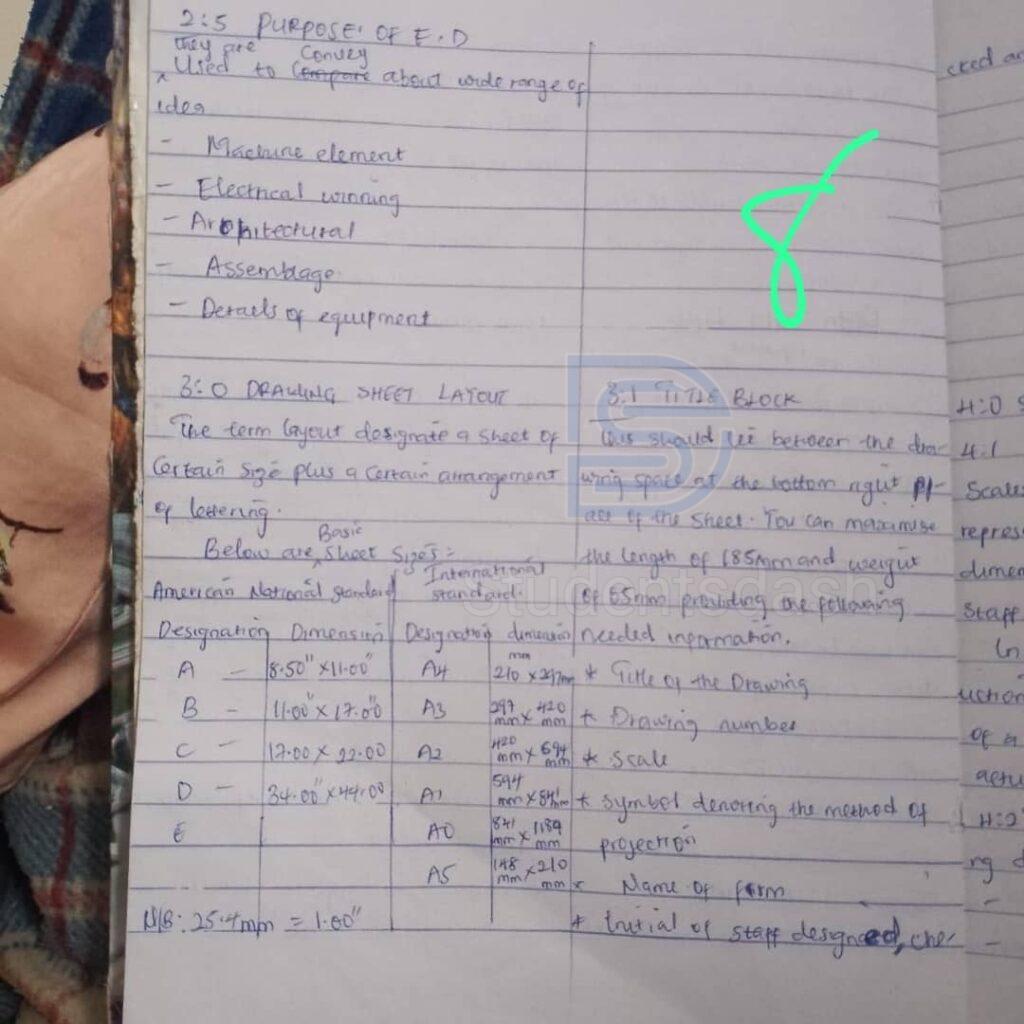 2:5 PURPOSE OF E.D
they are Convey
Used to Compare about wide range of
idea
- Machine element
- Electrical winning
- Architectural
- Assemblage
- Details of equipment
8
3:0 DRAWING SHEET LAYOUT
The term layout designate a sheet of
Certain Size plus a Certain arrangement
of lettering.
Basic
Below are sheet Sizes:
American National standard International standard.
Designation Dimension Designation dimension
A - 8.50" x 11.00" A4 210 mm x 297mm
B - 11.00" x 17.00 A3 297 mm x 420 mm
C - 17.00 x 22.00 A2 420 mm x 594 mm
D - 34.00" x 44.00 A1 594 mm x 841mm
E A0 841 mm x 1189 mm
A5 148 mm x 210 mm
N/B: 25.4mm = 1.00"
3.1 TITLE BLOCK
this should lie between the dra-
wing space at the bottom right pl-
ace of the sheet. You can maximise
the length of 185mm and weight
of 65mm providing the following
needed information.
* Title of the Drawing
* Drawing number
* Scale
* symbol denoting the method of
projection
* Name of firm
* Initial of staff designed, che-
cked an
4:0 S
4.1
Scales
repres
dimen
staff
In
uction
of a
actu
4:2
ng d
-
-
SD
studentsdash